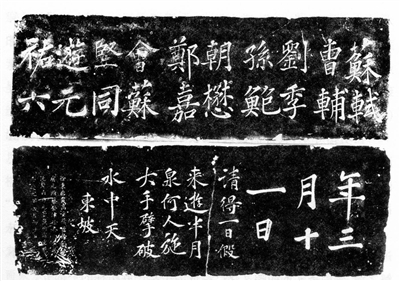 蘇軾
曹輔
劉季
孫鮑
朝懋
鄭嘉
會蘇
堅同
遊元
祐六
年三
月十
一日
請得一日假
来遊半月
泉何人施
大手擘破
水中天
東坡